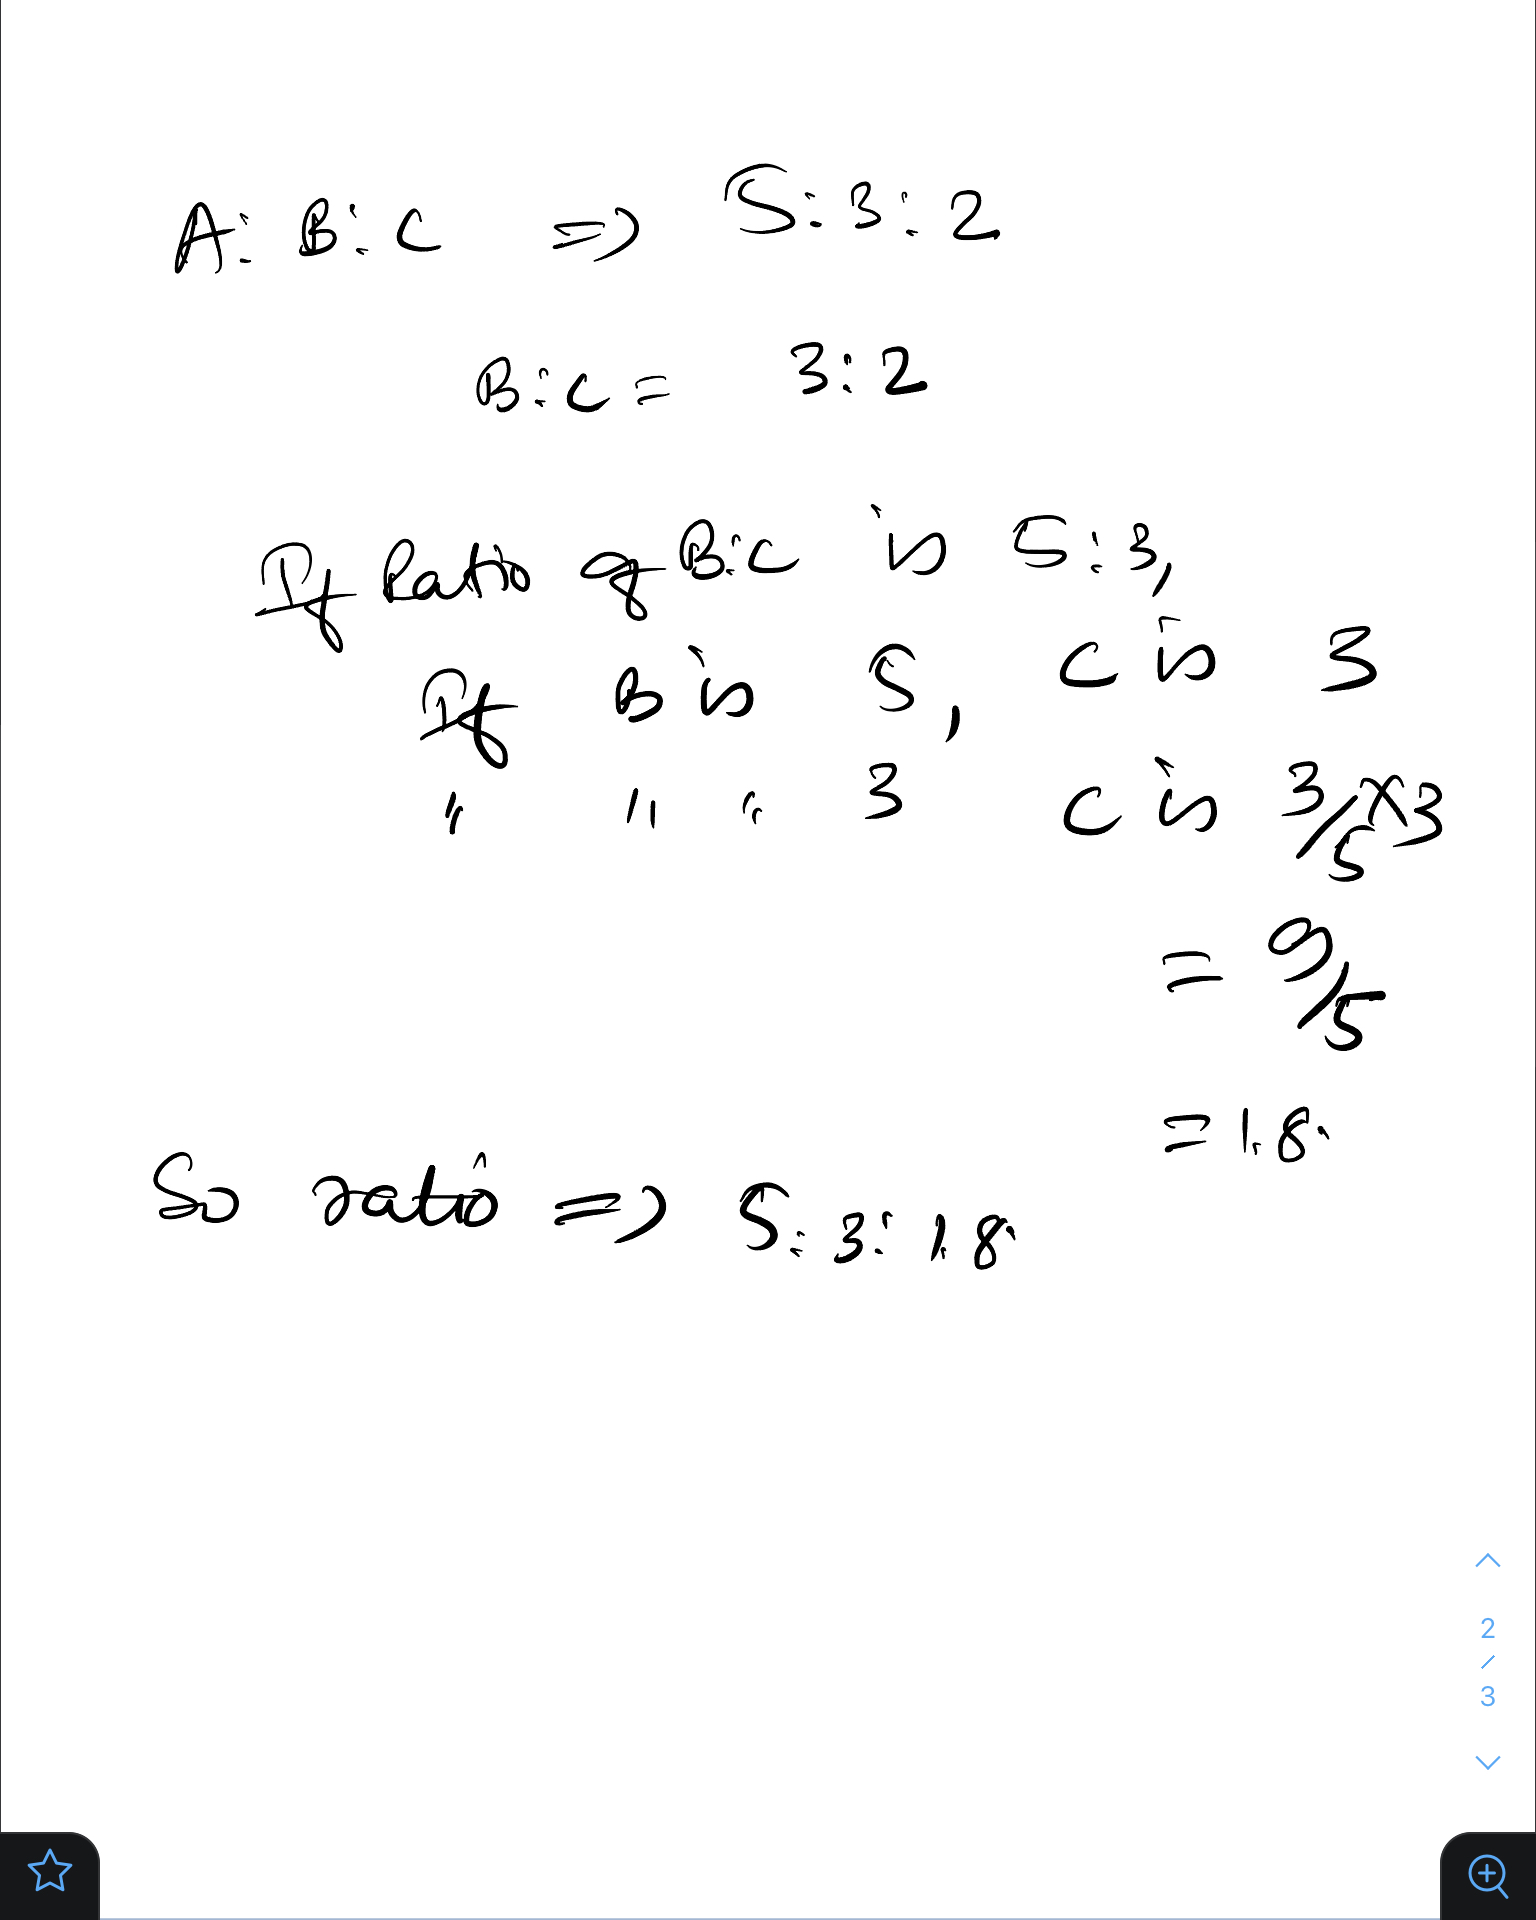 A: B: C => 5: 3: 2
B: C = 3: 2
If Ratio of B:C is 5:3,
If B is 5, C is 3
" " " 3 C is 3/5 x3
= 9/5
= 1.8.
So ratio => 5: 3: 1.8.
2
/
3